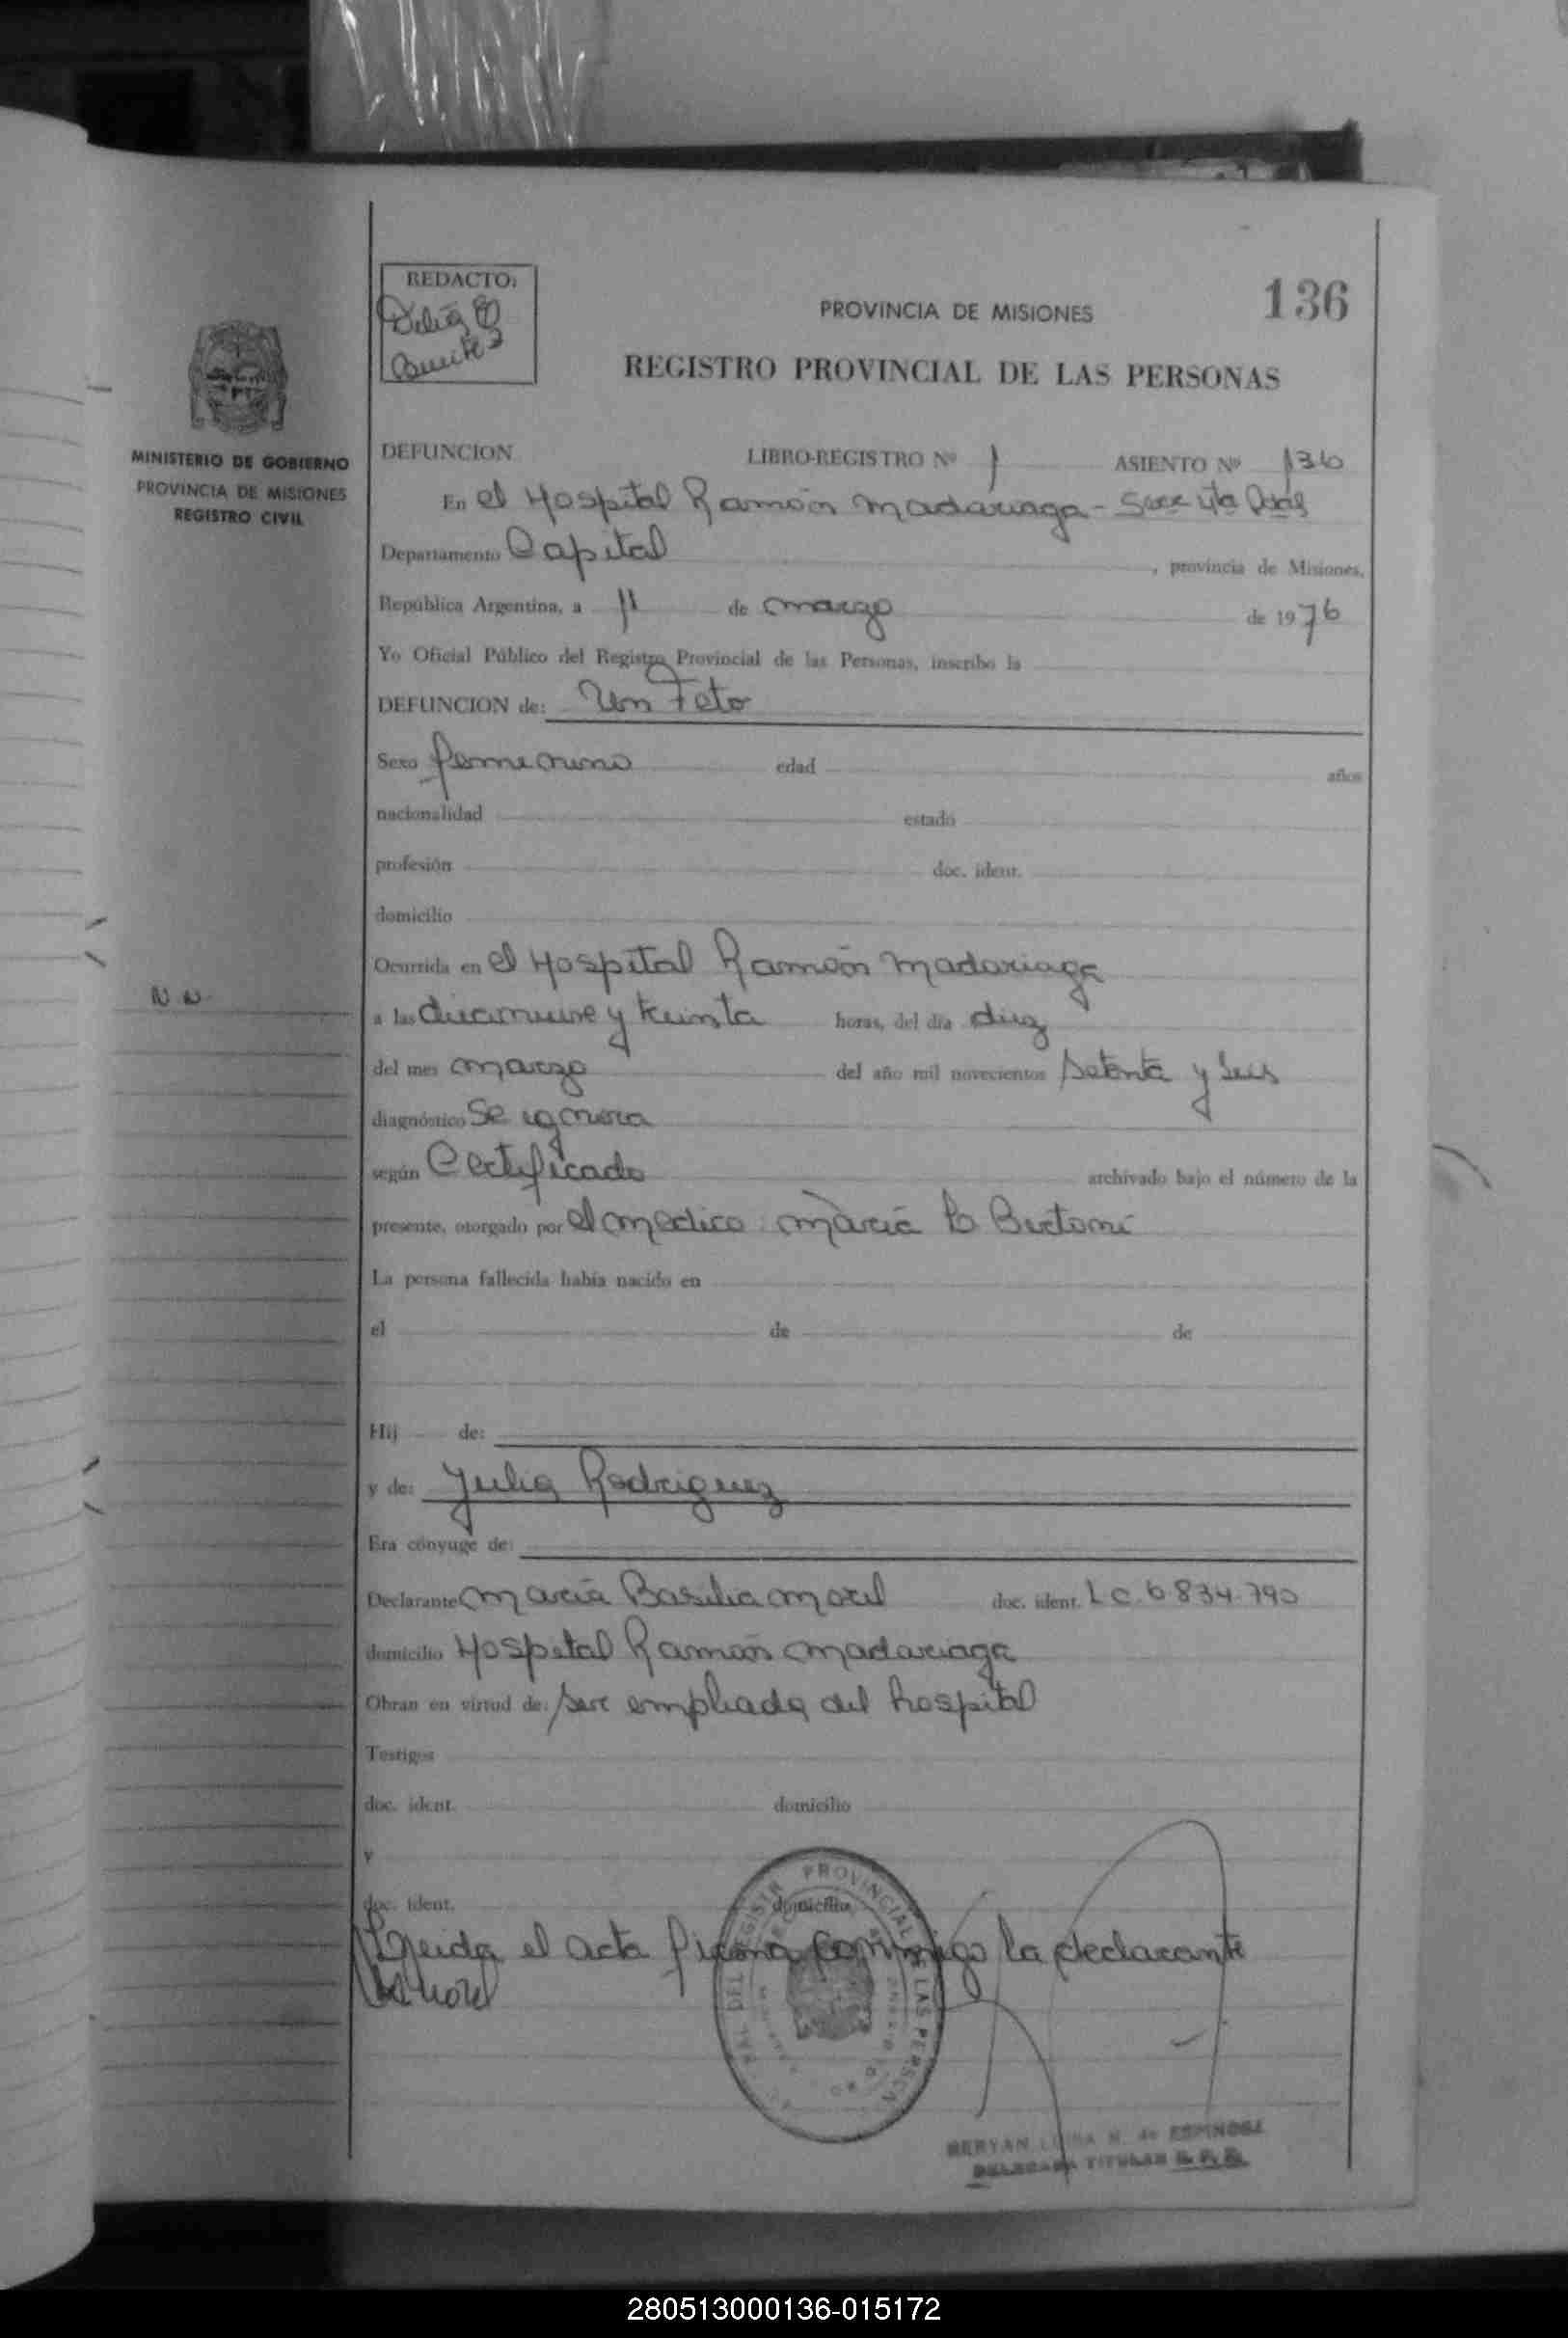 REDACTO:
Delia E
Benitez
PROVINCIA DE MISIONES
136
REGISTRO PROVINCIAL DE LAS PERSONAS
MINISTERIO DE GOBIERNO
PROVINCIA DE MISIONES
REGISTRO CIVIL
DEFUNCION LIBRO-REGISTRO Nº 1 ASIENTO Nº 136
En el Hospital Ramón Madariaga - Secc 4ta Pdas
Departamento Capital, provincia de Misiones,
República Argentina, a 11 de marzo de 1976
Yo Oficial Público del Registro Provincial de las Personas, inscribo la
DEFUNCION de: Un Feto
Sexo femenino edad años
nacionalidad estado
profesión doc. ident.
domicilio
Ocurrida en el Hospital Ramón Madariaga
N.N.
a las diecinueve y treinta horas, del día diez
del mes marzo del año mil novecientos setenta y seis
diagnóstico Se ignora
según Certificado archivado bajo el número de la
presente, otorgado por el medico María Bertoni
La persona fallecida había nacido en
el de de
Hij de:
y de: Julia Rodriguez
Era cónyuge de:
Declarante María Basilia Morel doc. ident. L C. 6834.790
domicilio Hospital Ramón Madariaga
Obran en virtud de: ser empleada del hospital
Testigos
doc. ident. domicilio
y
doc. ident. domicilio
Leida el acta firma conmigo la declarante
Morel
REGISTR PROVINCIAL DE LAS PERSON
LUISA N. de ESPINOSA
DELEGADA TITULAR R. P. P.
280513000136-015172